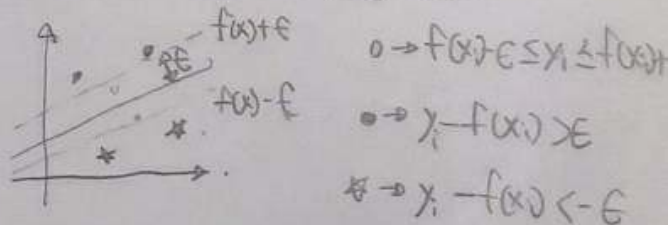 f(x)+ϵ
ϵ
f(x)-ϵ
o → f(xᵢ)-ϵ≤yᵢ≤f(xᵢ)+
● → yᵢ-f(xᵢ)>ϵ
☆ → yᵢ-f(xᵢ)<-ϵ